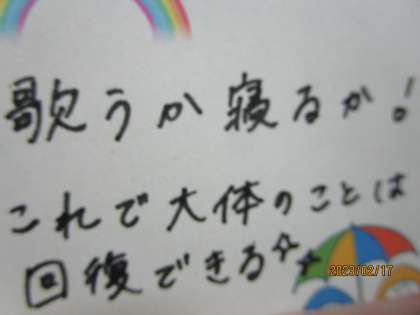 歌うか寝るか!
これで大体のことは
回復できる☆☆
2023/02/17